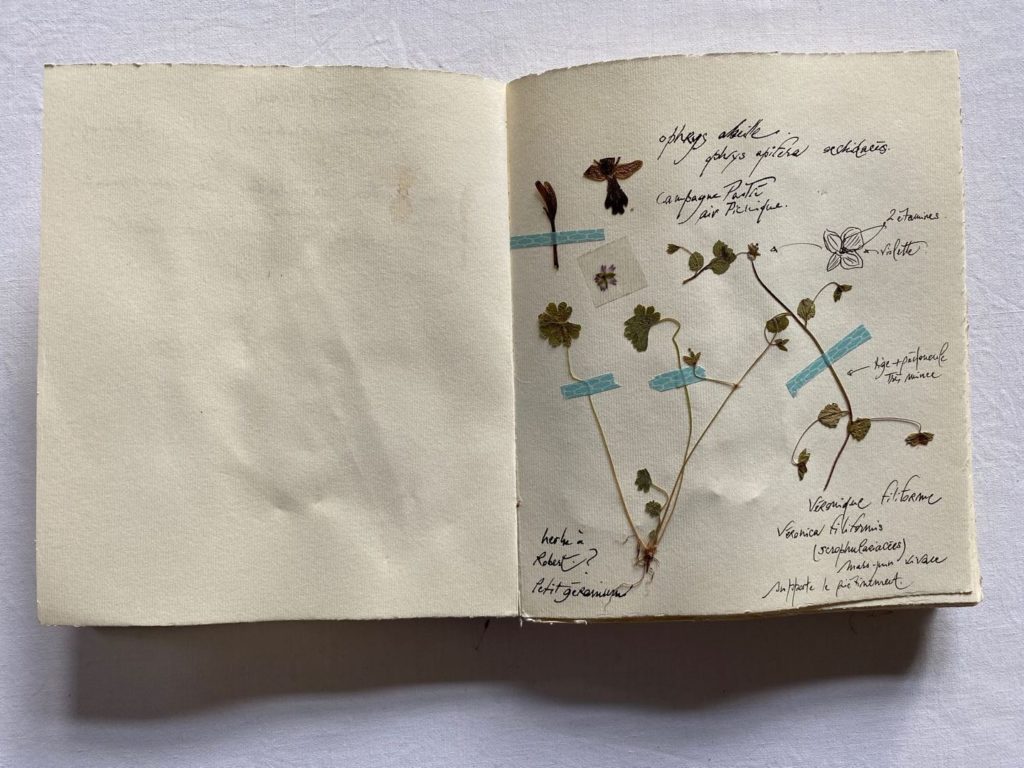 ophrys abeille.
ophrys apifera orchidacées.
Campagne
air Picnique.
2 étamines.
violette.
tige + pédoncule
très mince
Véronique filiforme
Veronica filiformis
(scrophulariacées)
mars-juin vivace
supporte le piétinement.
herbe à
Robert.?
Petit géranium